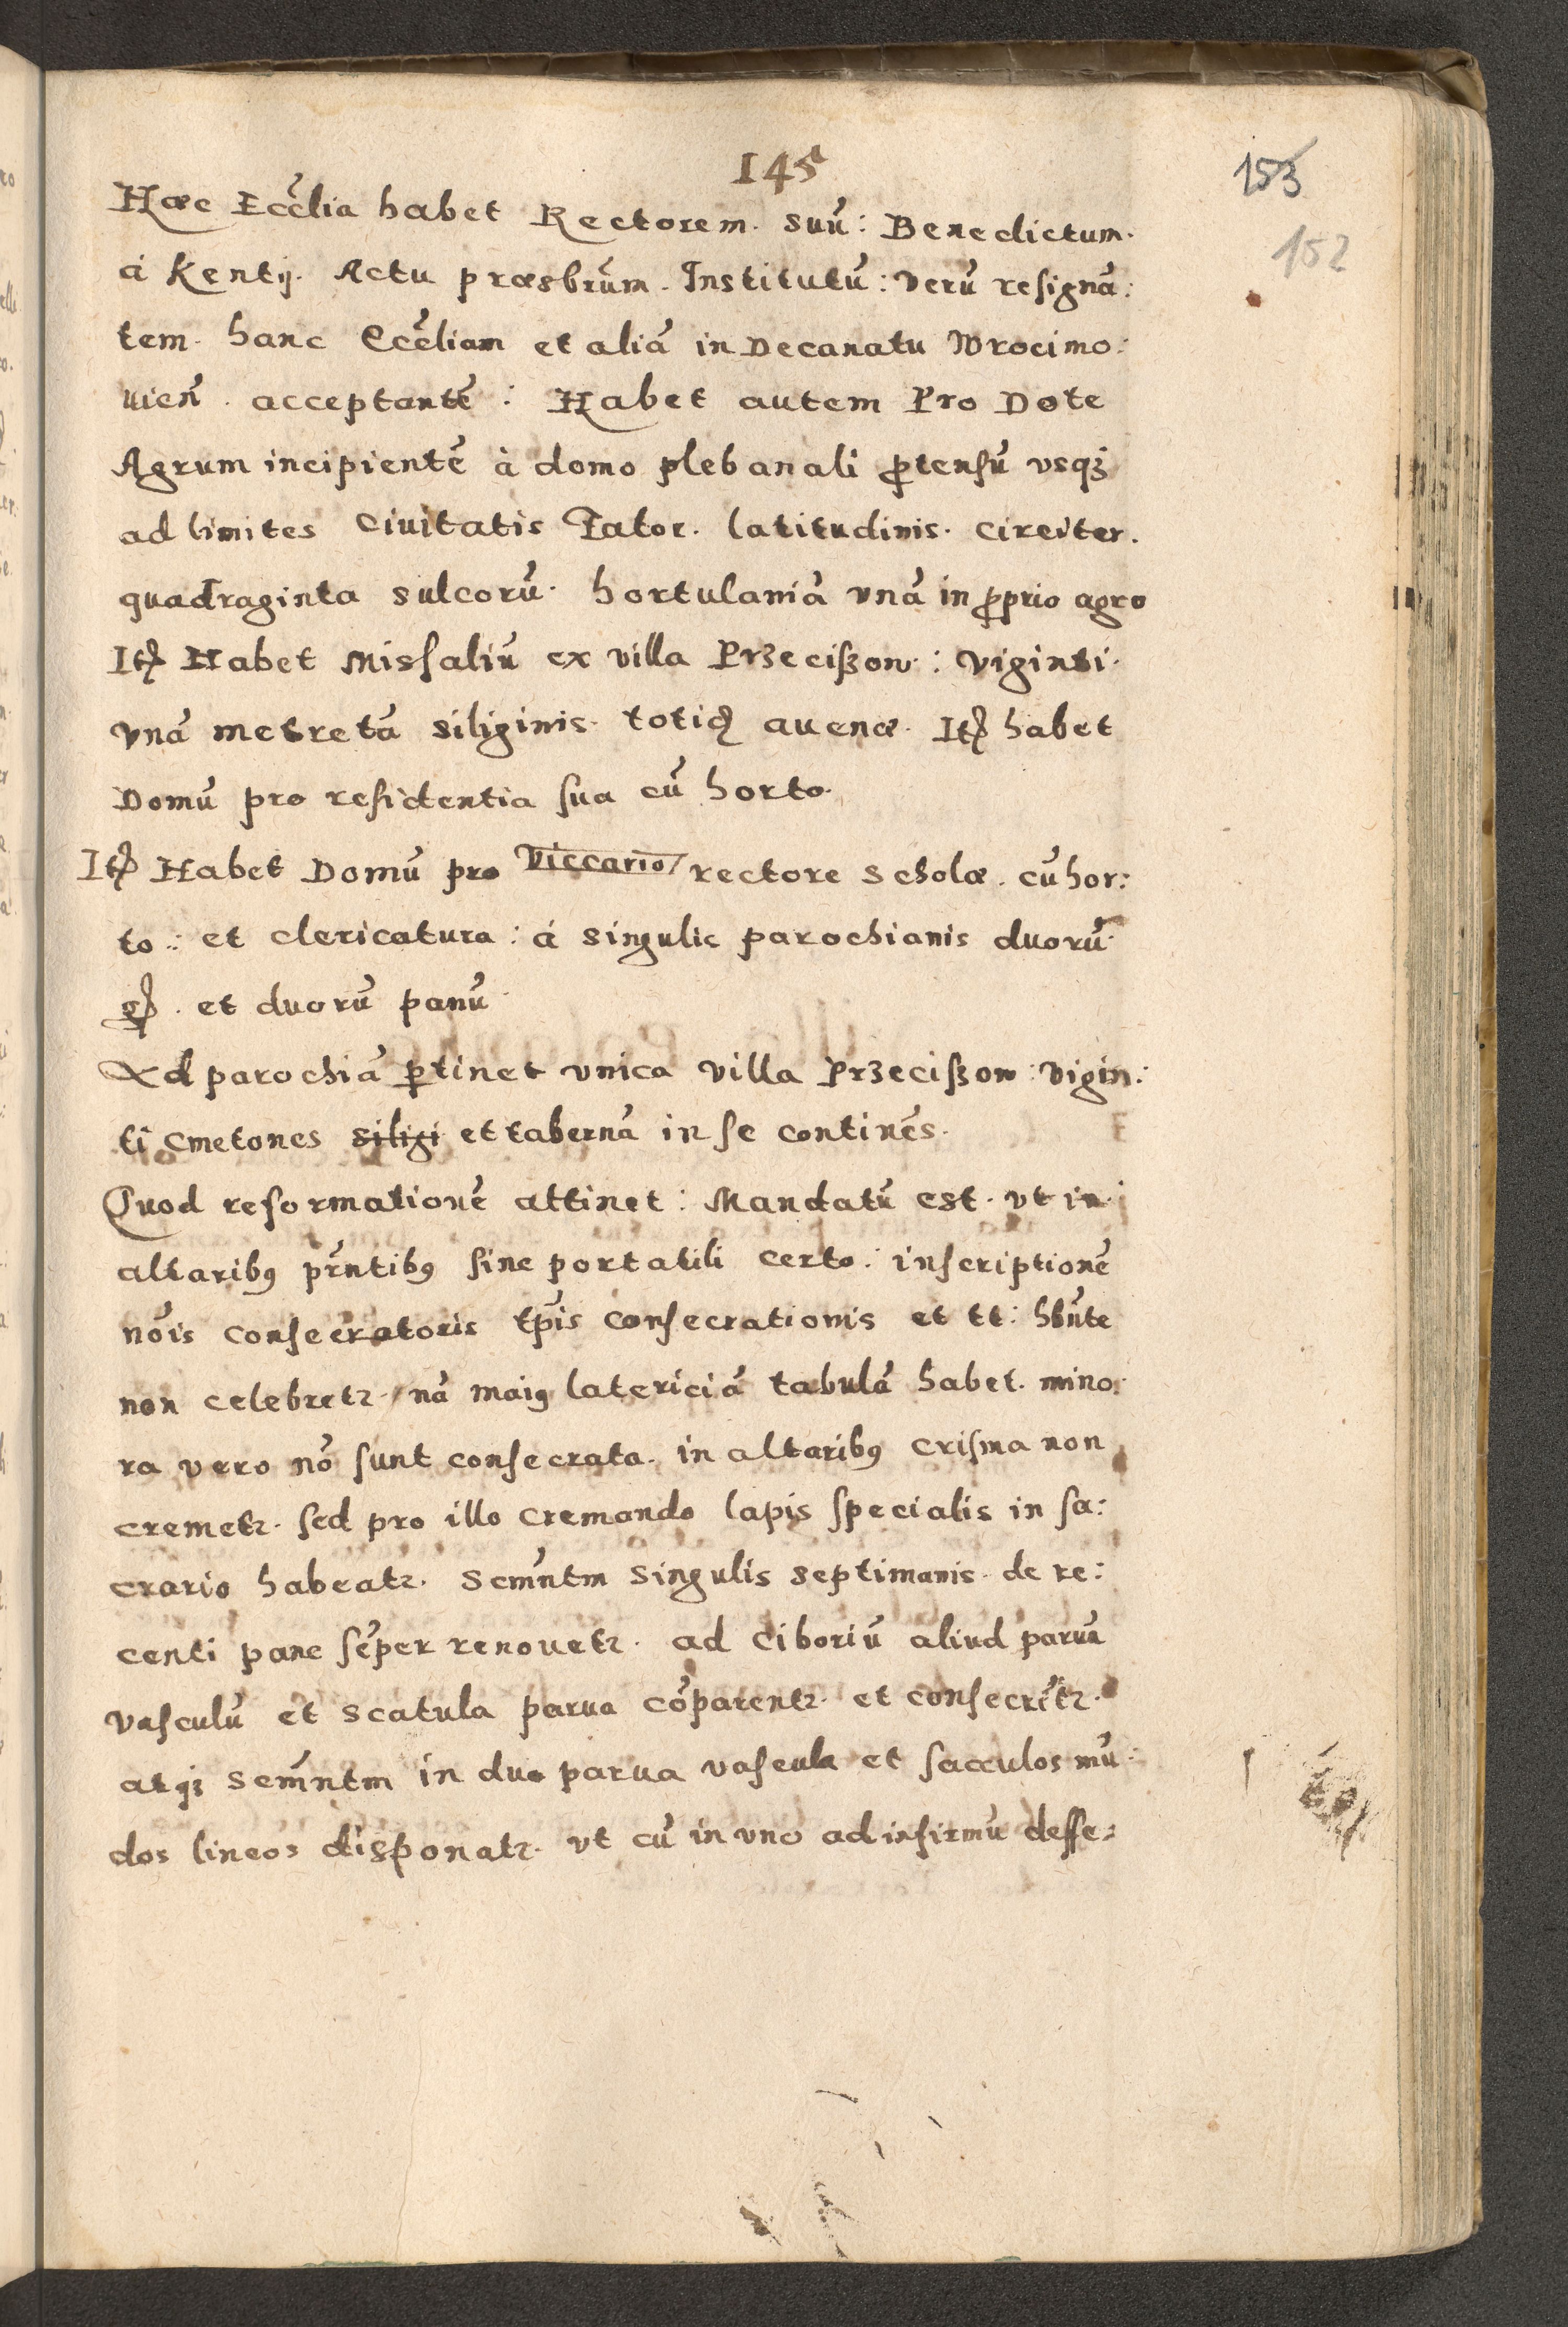 145
153
152
Hæc Eccĺia habet Rectorem. suū: Benedictum.
á Kentÿ. Actu præsbrūm. Institutū: verū resignā:
tem. hanc Eccĺiam et aliā in Decanatu Wrocimo:
uień. acceptantē: Habet autem Pro Dote
Agrum incipientē à domo plebanali ꝓtensū vsqꝫ
ad limites Ciuitatis Zator. latitudinis. circiter.
quadraginta sulcorū. hortulaniā vnā in ꝓprio agro
Itꝫ Habet Missaliū ex villa Przeciszow: viginti.
vnā metretā siliginis. totiꝫ auenæ. Itꝫ habet
Domū pro residentia sua cū horto.
Itꝫ Habet Domū pro Viccario rectore scholæ. cū hor:
to: et clericatura: á singulis parochianis duorū
gꝫ. et duorū panū.
Ad parochiā ꝑtinet vnica villa Przeciszow: vigin:
ti Cmetones siligi et tabernā in se continēs.
Quod reformationē attinet: Mandatū est. vt in
altaribꝰ prn̄tibꝰ sine portatili certo: inscriptionē
nōis consecratoris tp̄is consecrationis et tt: hn̄te
non celebretꝛ. nā maiꝰ latericiā tabulā habet. mino:
ra vero nō sunt consecrata. in altaribꝰ Crisma non
cremetꝛ. sed pro illo cremando lapis specialis in sa:
crario habeatꝛ. Scm̄ntm singulis septimanis. de re:
centi pane sēper renouetꝛ. ad Ciboriū aliud paruū
vasculū et scatula parua cōparentꝛ. et consecrētꝛ.
atqꝫ scm̄ntm in duo parua vascula et sacculos mū:
dos lineos disponatꝛ. vt cū in vno ad infirmū deffe: